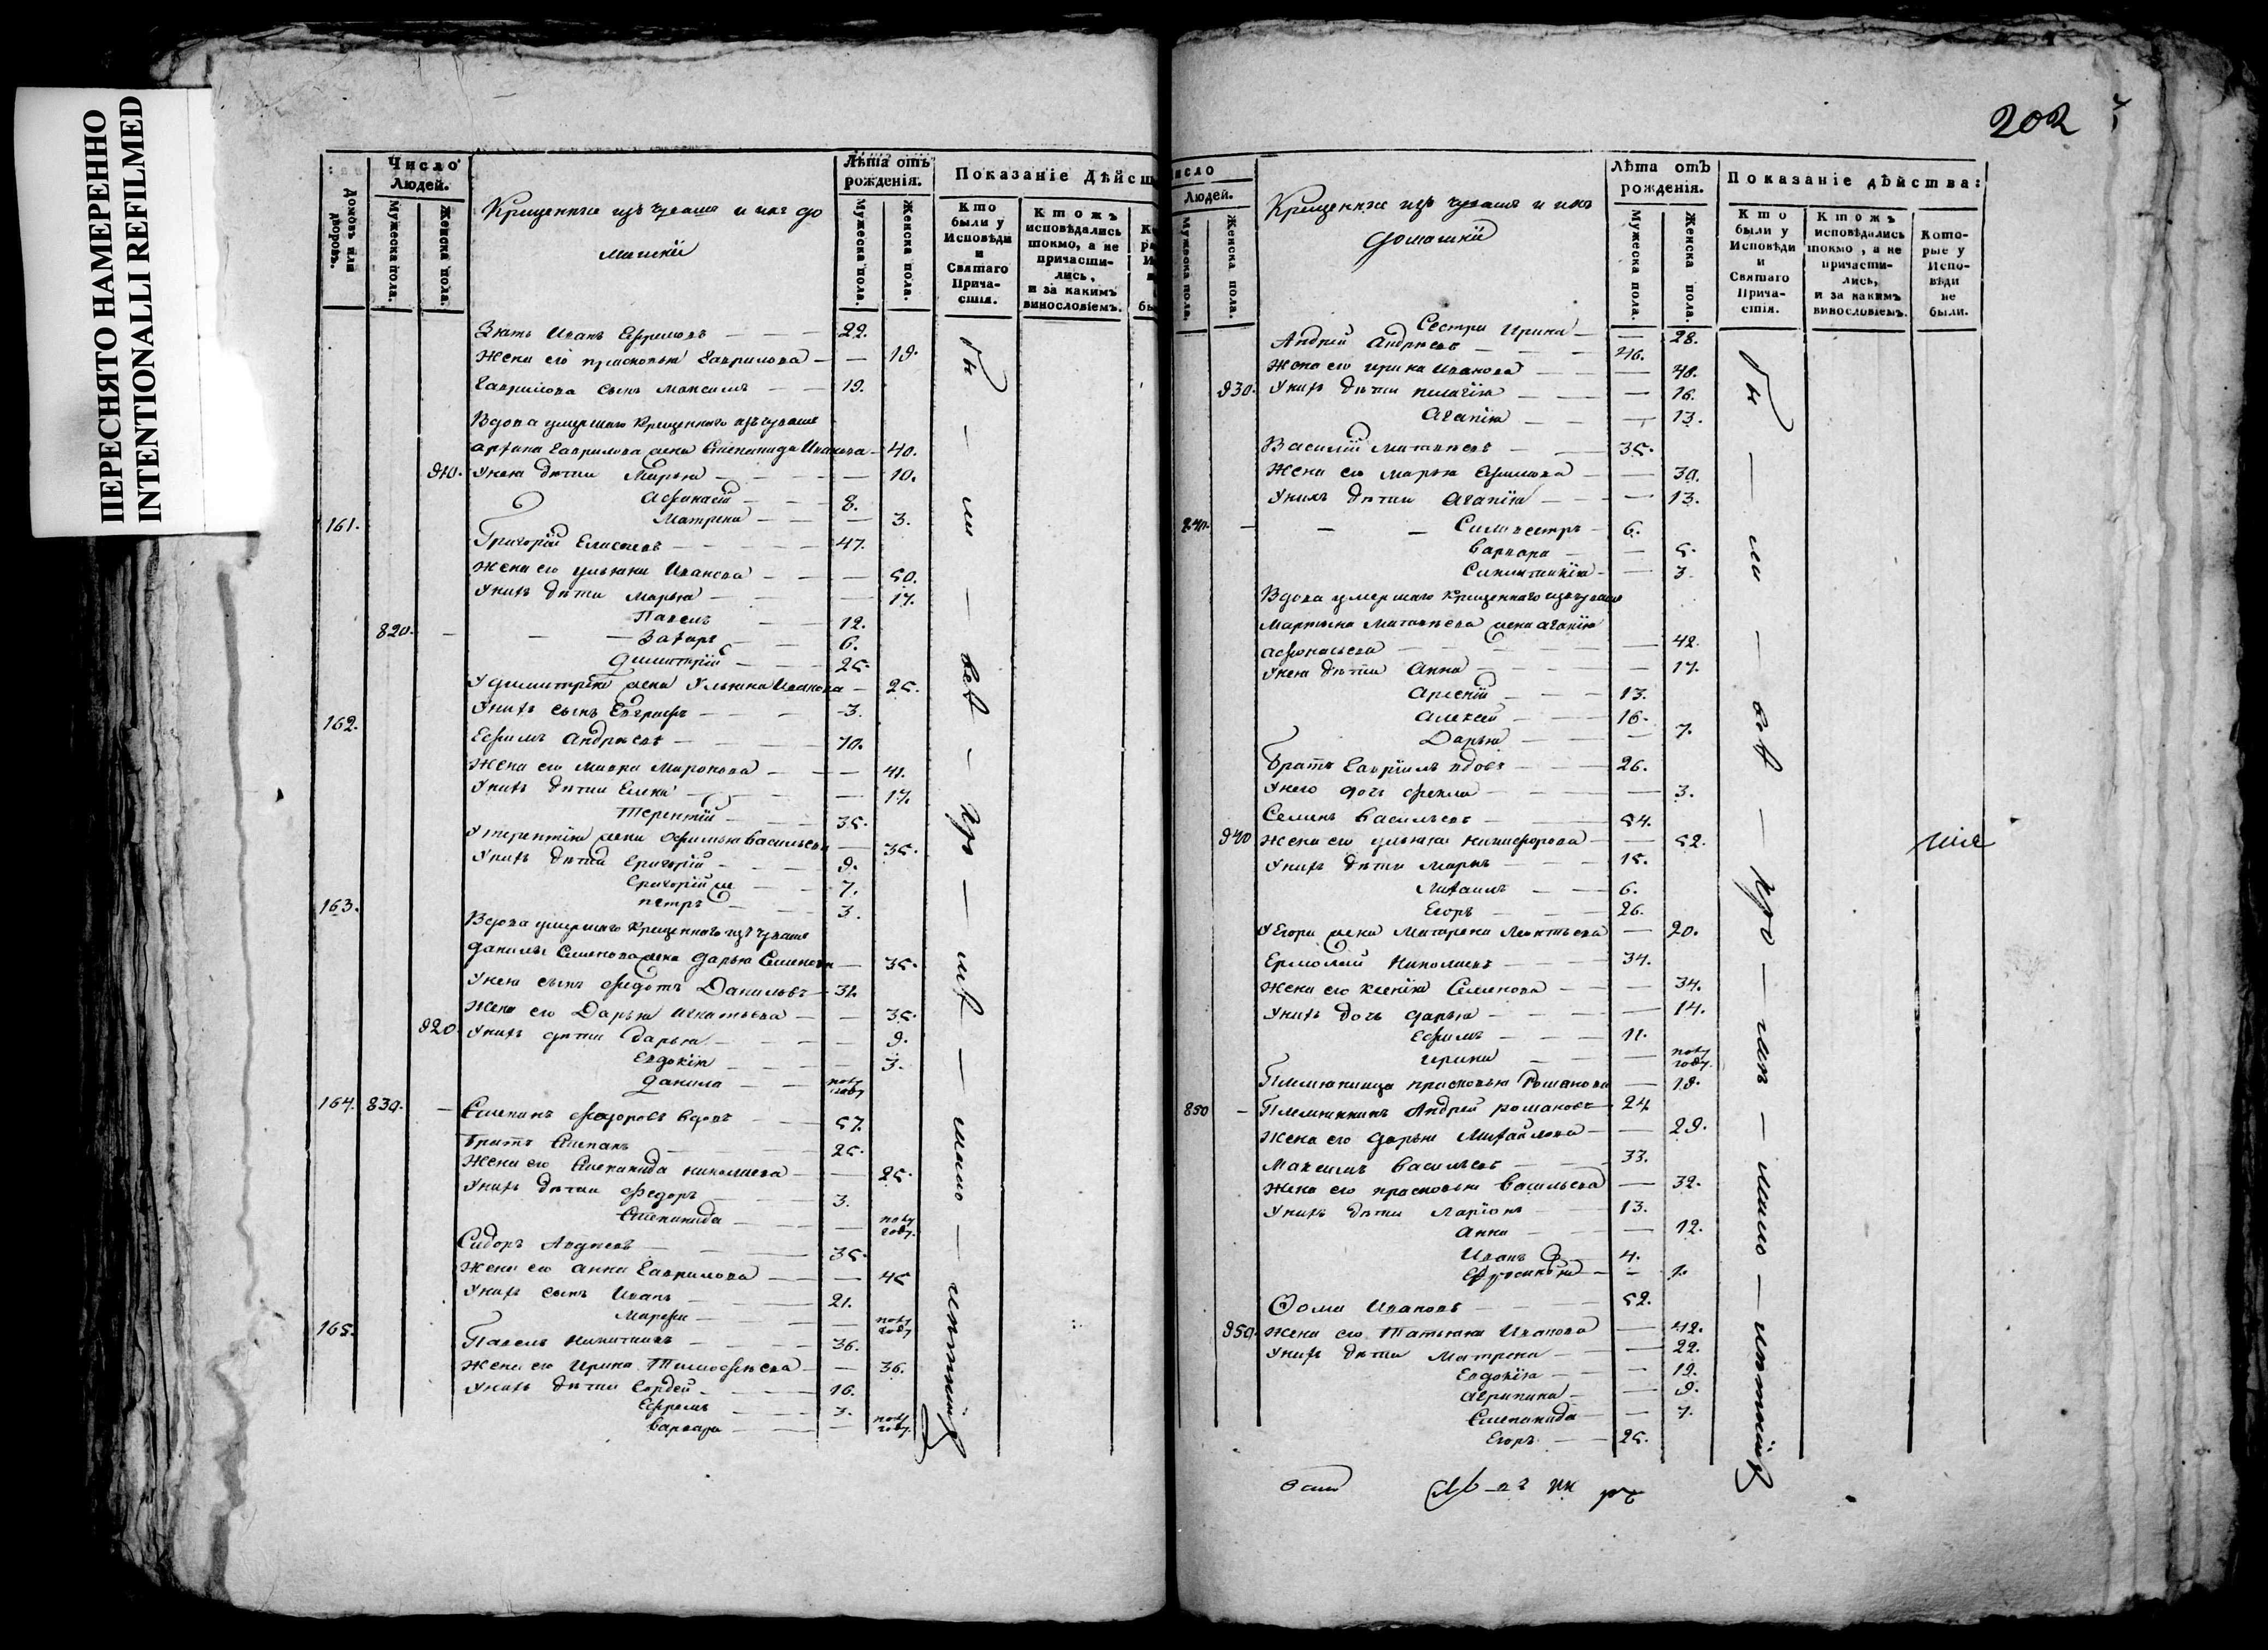 ПЕРЕСНЯТО НАМЕРЕННО
INTENTIONALLI REFILMED
Домовъ или дворовъ.
Число Людей.
Мужеска пола.
Женска пола.
Крещенные изъ чувашъ и ихъ до
машніи
Лѣта отъ рожденія.
Мужеска пола.
Женска пола.
Показаніе Дѣйст
Кто были у Исповѣди и Святаго Прича-стія.
Ктожъ исповѣдались токмо, а не причасти-лись, и за какимъ винословіемъ.
Зять Иванъ Ефремовъ — 22.
Жена его Прасковья Гаврилова — 19.
Гаврилова сынъ Максимъ — 19.
Вдова умершаго Крещеннаго изъ чувашъ
Гаврилова жена Степанида Иванова — 40.
910. У нею дѣти Марья — 10.
Афанасій — 8.
Матрена — 3.
161. Григорій Елисеевъ — 47.
Жена его Ульяна Иванова — 50.
У нихъ дѣти Марья — 17.
Павелъ — 12.
820. — Захаръ — 6.
Димитрій — 25.
У Димитрія жена Ульяна Иванова — 25.
У нихъ сынъ Евграфъ — 3.
162. Ефимъ Андреевъ — 70.
Жена его Мавра Миронова — 41.
У нихъ дѣти Елена — 17.
Терентій — 35.
У Терентія жена Офимья Васильева — 35.
У нихъ дѣти Григорій — 9.
Григорій же — 7.
Петръ — 3.
163. Вдова умершаго Крещеннаго изъ чувашъ
Данилы Семенова жена Дарья Семенова — 35.
У нею сынъ Федотъ Даниловъ — 32.
Жена его Дарья Игнатьева — 35.
920. У нихъ дѣти Дарья — 9.
Евдокія — 3.
Данила — полу году
164. 830. — Степанъ Федоровъ вдовъ — 57.
Братъ Степанъ — 25.
Жена его Степанида Николаева — 25.
У нихъ дѣти Федоръ — 3.
Степанида — полу году.
Сидоръ Авдеевъ — 35.
Жена его Анна Гаврилова — 45
У нихъ сынъ Иванъ — 21.
Марфа — полу году
165. Павелъ Никитинъ — 36.
Жена его Ирина Тимофеева — 36.
У нихъ дѣти Сергей — 16.
Ефремъ — 3.
Варвара — полу году.
202
исло
Людей.
Мужеска пола.
Женска пола.
Крещенные изъ чувашъ и ихъ
домашніи
Лѣта отъ рожденія.
Мужеска пола.
Женска пола.
Показаніе дѣйства:
Кто были у Исповѣди и Святаго Прича-стія.
Ктожъ исповѣдались токмо, а не причасти-лись, и за какимъ винословіемъ.
Кото-рые у Испо-вѣди не были.
Сестра Ирина — 28.
Андрей Андреевъ — 46.
Жена его Ирина Иванова — 48.
930. У нихъ дѣти Пелагія — 16.
Агапія — 13.
Василій Матвеевъ — 35.
Жена его Марья Ефимова — 30.
У нихъ дѣти Агапія — 13.
840. — Сильвестръ — 6.
Варвара — 5.
3.
Вдова умершаго Крещеннаго изъ чувашъ
Мартына Матвеева жена Агапія
Афонасьева — 42.
У нею дѣти Анна — 17.
Арсеній — 13.
Алексей — 16.
Дарья — 7.
Братъ Гавріилъ вдовъ — 26.
У него дочь Фекла — 3.
Семенъ Васильевъ — 54.
940 Жена его Ульяна Никифорова — 52.
У нихъ дѣти Маркъ — 15.
Михаилъ — 6.
Егоръ — 26.
У Егора жена Матрена Леонтьева — 20.
Ермолай Николаевъ — 34.
Жена его Ксенія Семенова — 34.
У нихъ дочь Дарья — 14.
Ефимъ — 11.
Ирина — полу году.
Племянница Прасковья Романова — 18.
850 — Племянникъ Андрей Романовъ — 24
Жена его Дарья Михайлова — 29.
Максимъ Васильевъ — 33.
Жена его Прасковья Васильева — 32.
У нихъ дѣти Ларіонъ — 13.
Анна — 12.
Иванъ — 4.
Ефросинья —
Ѳома Ивановъ — 52.
950. Жена его Татьяна Иванова — 42.
У нихъ дѣти Матрена — 22.
Евдокія — 19.
Агрипина — 9.
Степанида — 7.
Егоръ — 25.